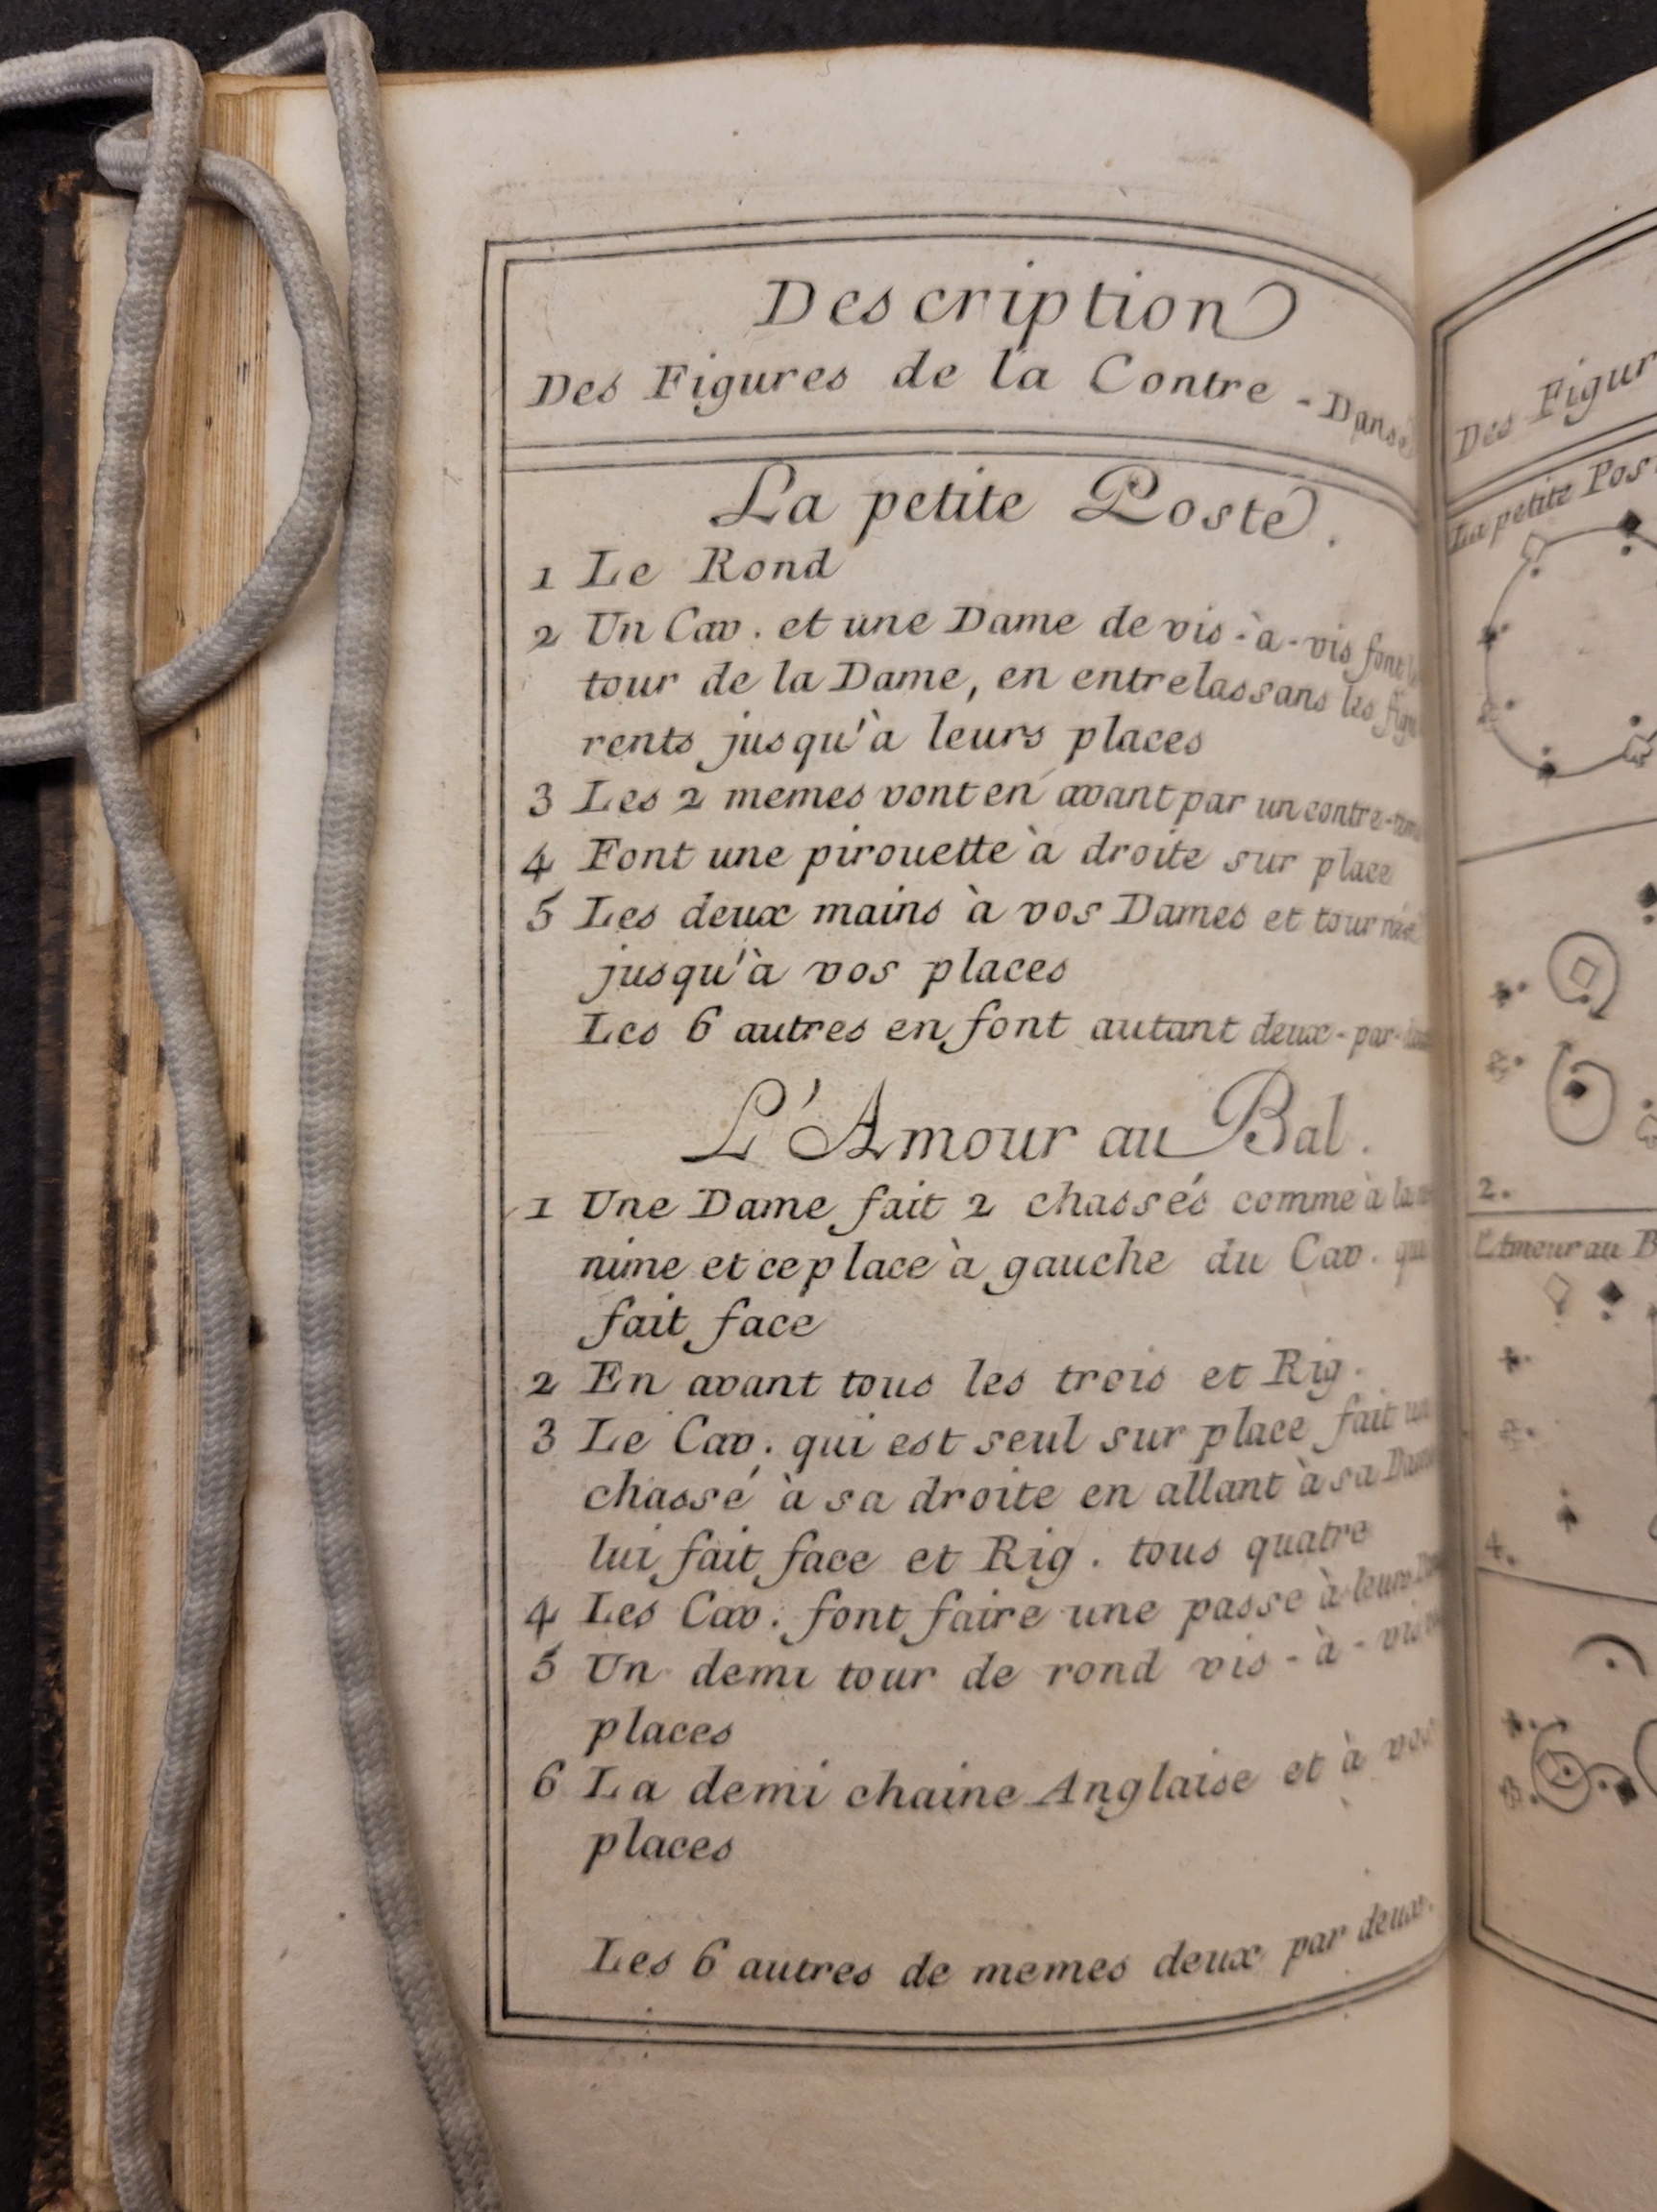 Description
Des Figures de la Contre-Danse
La petite Poste.
1 Le Rond
2 Un Cav. et une Dame de vis-à-vis font
tour de la Dame, en entrelassans les
rents jusqu'à leurs places
3 Les 2 memes vont en avant par un contre-
4 Font une pirouette à droite sur place
5 Les deux mains à vos Dames et
jusqu'à vos places
Les 6 autres en font autant deux-par-
L'Amour au Bal.
1 Une Dame fait 2 chassés comme à la
nime et ce place à gauche du Cav. qui
fait face
2 En avant tous les trois et Rig.
3 Le Cav. qui est seul sur place fait un
chassé à sa droite en allant à sa Dame
lui fait face et Rig. tous quatre
4 Les Cav. font faire une passe à leurs
5 Un demi tour de rond vis-à-vis
places
6 La demi chaine Anglaise et à vos
places
Les 6 autres de memes deux par deux.
Des Figur
La petite Pos
2.
L'Amour au B
4.